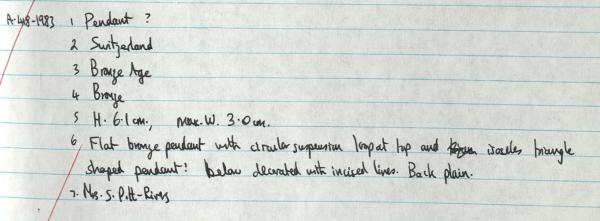 A.418-1983 1 Pendant ?
2 Switzerland
3 Bronze Age
4 Bronze
5 H. 6.1cm., max.W. 3.0cm.
6 Flat bronze pendant with circular suspension loop at top and isoceles triangle
shaped pendant? below decorated with incised lines. Back plain.
7. Mrs. S. Pitt-Rivers